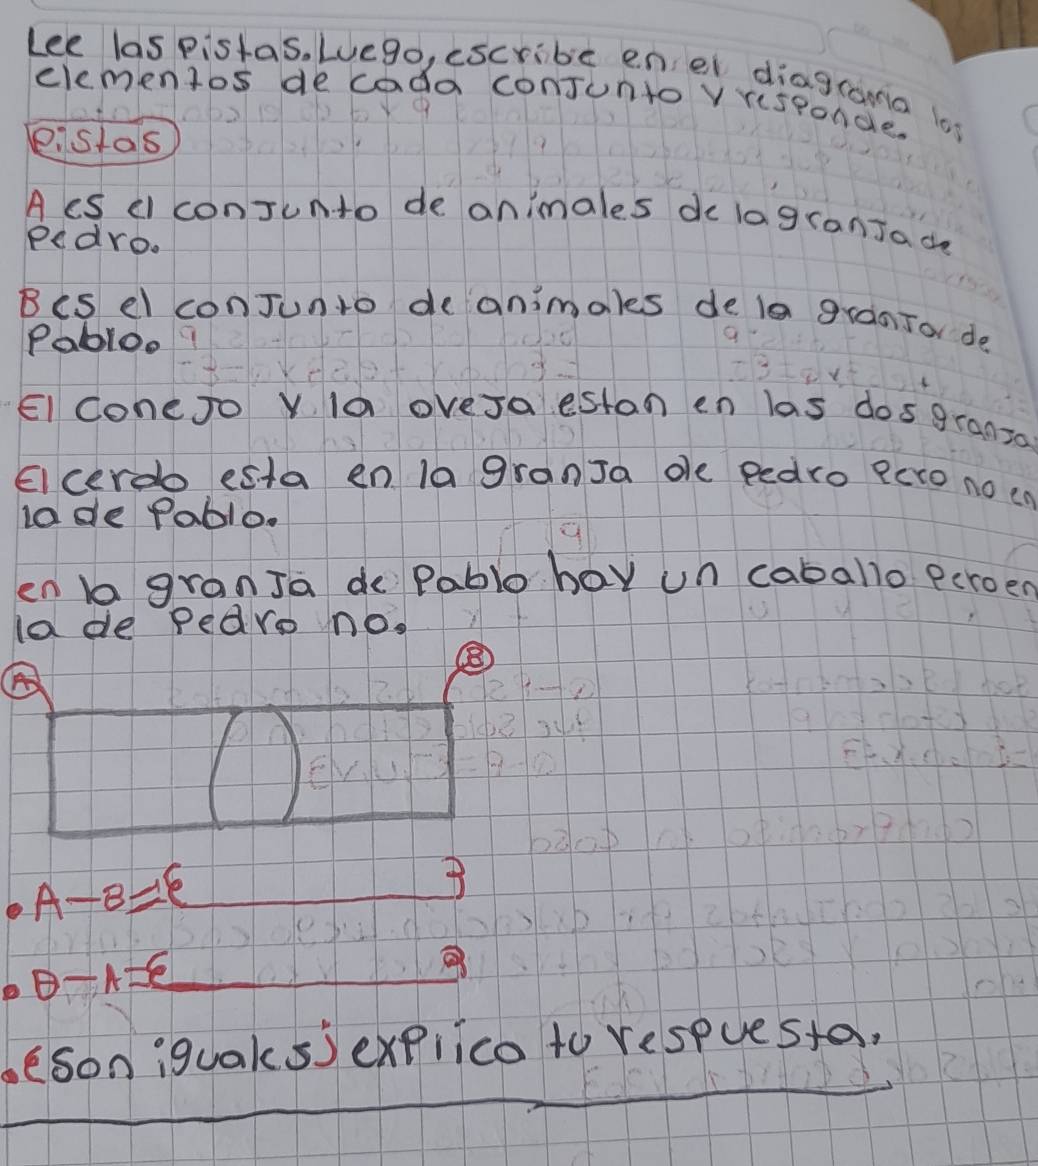 Lee las pistas. Luego, escribe en el diagrama los
elementos de cada conjunto y responde.
Pistas
A es el conjunto de animales de la granja de
Pedro.
B es el conjunto de animales de la granja de
Pablo.
El conejo y la oveja estan en las dos granja
El cerdo esta en la granja de pedro pero no en
la de Pablo.
en la granja de Pablo hay un caballo pero en
la de Pedro no.
A B
• A-B={ }
• B-A={ }
• ¿son iguales? explico tu respuesta.